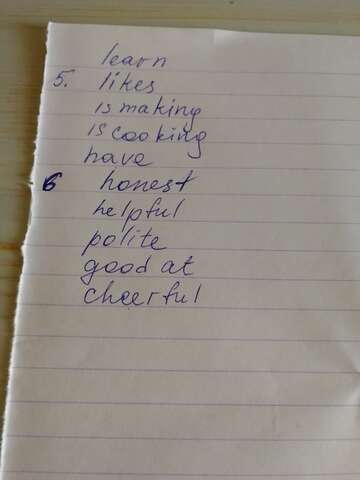 learn
5. likes
is making
is cooking
have
6 honest
helpful
polite
good at
cheerful